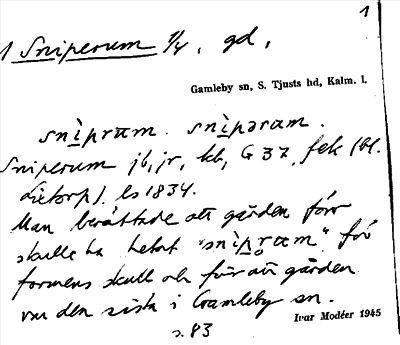 1
1 Sniperum 1/4, gd,
Gamleby sn, S. Tjusts hd, Kalm. l.
snìpram. snìpəram.
Sniperum jb, jr, kb, G 37, fek (bl.
Lietorp). ls 1834.
Man berättade att gården förr
skulle ha hetat "snìpræm" för
formens skull och för att gården
var den sista i Gamleby sn.
Ivar Modéer 1945
s. 83